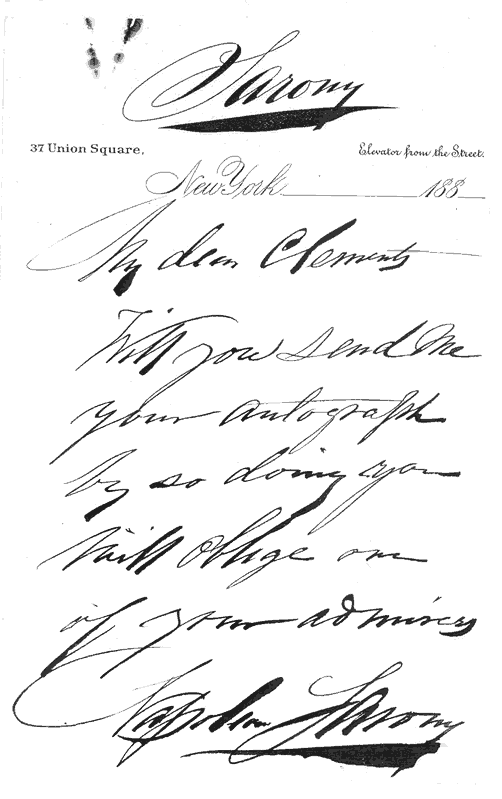 Sarony
37 Union Square.
Elevator from the Street.
New York 188
My dear Clements
Will you send me
your autograph
by so doing you
will oblige one
of your admirers
Napoleon Sarony